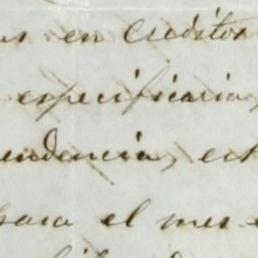 en creditos
especificaria,
endencia, est
para el mes